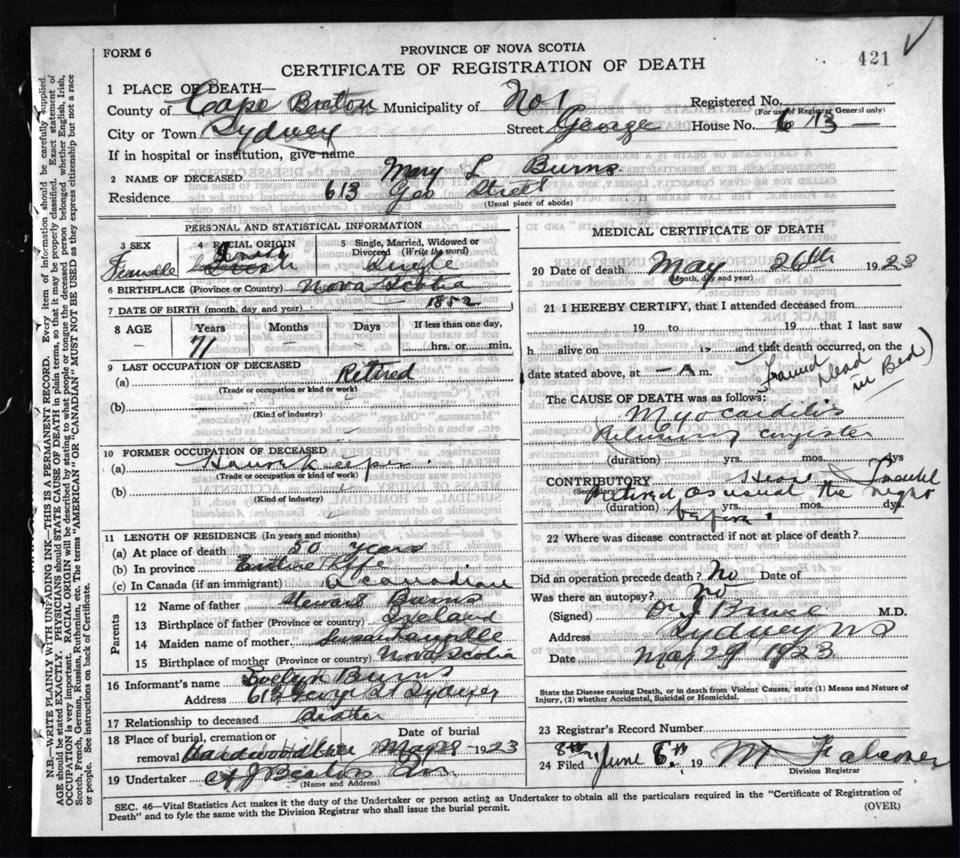 FORM 6
PROVINCE OF NOVA SCOTIA
421
CERTIFICATE OF REGISTRATION OF DEATH
1 PLACE OF DEATH—
County of Cape Breton Municipality of No 1 Registered No.
(For use of Registrar General only)
City or Town Sydney Street George House No. 613
If in hospital or institution, give name
2 NAME OF DECEASED Mary L Burns
Residence 613 Geo Street
(Usual place of abode)
PERSONAL AND STATISTICAL INFORMATION
3 SEX
Female
4 RACIAL ORIGIN
Irish
5 Single, Married, Widowed or Divorced (Write the word)
Single
6 BIRTHPLACE (Province or Country) Nova Scotia
7 DATE OF BIRTH (month, day and year) 1852
8 AGE Years Months Days If less than one day,
— 71 — hrs. or min.
9 LAST OCCUPATION OF DECEASED
(a) Retired
(Trade or occupation or kind of work)
(b)
(Kind of industry)
10 FORMER OCCUPATION OF DECEASED
(a) House Keeper
(Trade or occupation or kind of work)
(b)
(Kind of industry)
11 LENGTH OF RESIDENCE (In years and months)
(a) At place of death 50 years
(b) In province Entire life
(c) In Canada (if an immigrant) a Canadian
Parents
12 Name of father Stewart Burns
13 Birthplace of father (Province or country) Ireland
14 Maiden name of mother Susan
15 Birthplace of mother (Province or country) Nova Scotia
16 Informant's name Evelyn Burns
Address 613 George St Sydney
17 Relationship to deceased
18 Place of burial, cremation or removal Date of burial
Hardwood Hill May 28 1923
19 Undertaker A J Beaton Son
(Name and Address)
MEDICAL CERTIFICATE OF DEATH
20 Date of death May 26th 1923
(Month, day and year)
21 I HEREBY CERTIFY, that I attended deceased from
19 to 19 that I last saw
h alive on 19 and that death occurred, on the
date stated above, at — A m.
Found Dead in Bed)
The CAUSE OF DEATH was as follows:
Myocarditis
(duration) yrs. mos. dys
CONTRIBUTORY
(Secondary)
Retired as usual the night
(duration) yrs. mos. dys.
before.
22 Where was disease contracted if not at place of death?
Did an operation precede death? No Date of
Was there an autopsy? No
(Signed) Dr J Bruce M.D.
Address Sydney NS
Date May 29 1923
State the Disease causing Death, or in death from Violent Causes, state (1) Means and Nature of
Injury, (2) whether Accidental, Suicidal or Homicidal.
23 Registrar's Record Number
24 Filed June 6th 19 M Falconer
Division Registrar
SEC. 46—Vital Statistics Act makes it the duty of the Undertaker or person acting as Undertaker to obtain all the particulars required in the "Certificate of Registration of
Death" and to fyle the same with the Division Registrar who shall issue the burial permit.
(OVER)
N.B.—WRITE PLAINLY WITH UNFADING INK—THIS IS A PERMANENT RECORD. Every item of information should be carefully supplied.
AGE should be stated EXACTLY. PHYSICIANS should STATE CAUSE OF DEATH in plain terms, so that it may be properly classified. Exact statement of
OCCUPATION is very important. RACIAL ORIGIN will be described by stating to what people or tongue the deceased person belonged whether English, Irish,
Scotch, French, German, Russian, Ruthenian, etc. The terms "AMERICAN" OR "CANADIAN" MUST NOT BE USED as they express citizenship but not a race
or people. See instructions on back of Certificate.